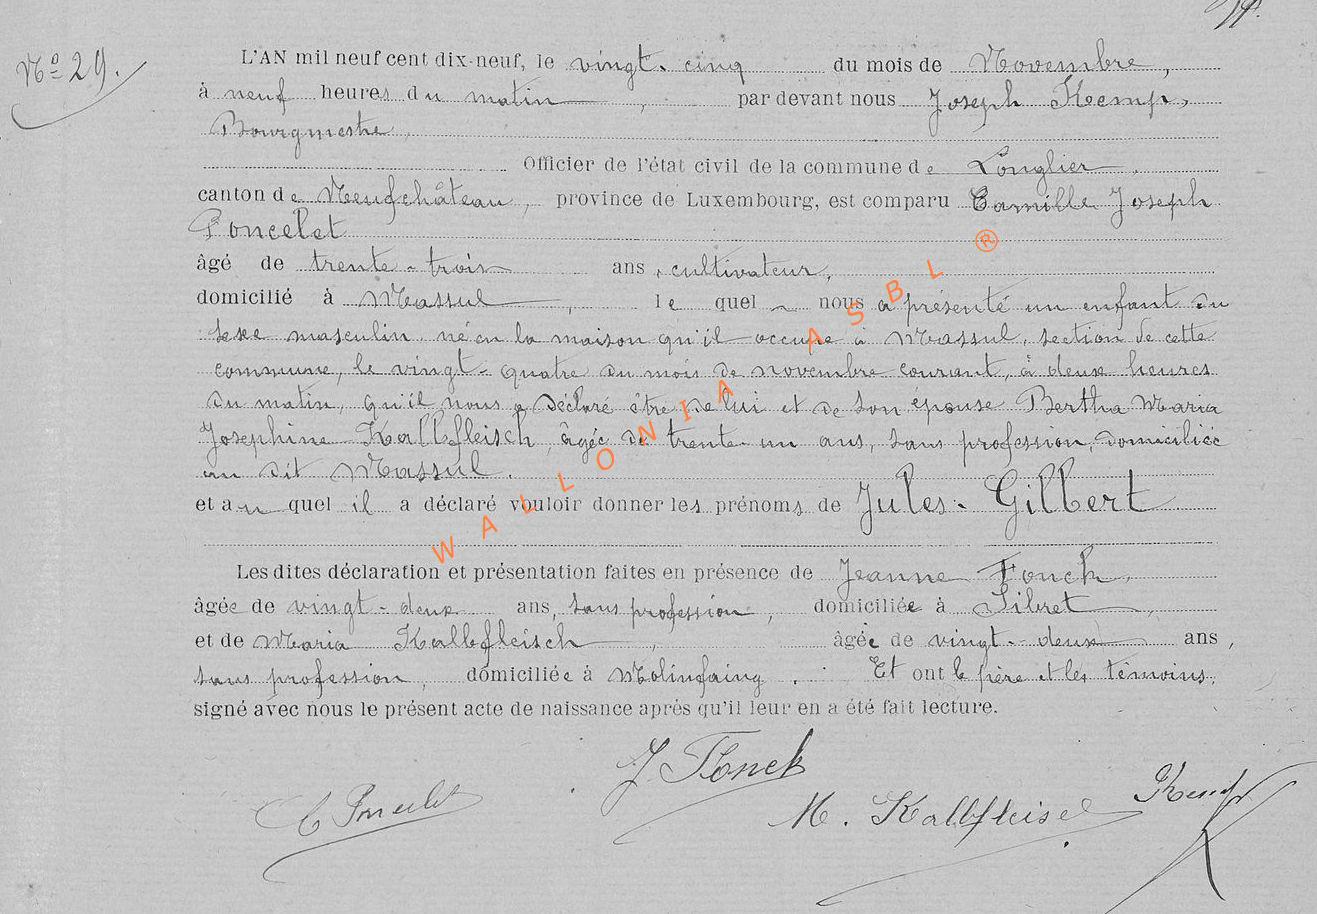 Nº 29.
L'AN mil neuf cent dix-neuf, le vingt-cinq du mois de Novembre,
à neuf heures du matin, par devant nous Joseph Kemp,
Bourgmestre
Officier de l'état civil de la commune de Longlier,
canton de Neufchâteau, province de Luxembourg, est comparu Camille Joseph
Poncelet
âgé de trente-trois ans, cultivateur,
domicilié à Massul, le quel nous a présenté un enfant du
sexe masculin, né en la maison qu'il occupe à Massul, section de cette
commune, le vingt-quatre du mois de novembre courant, à deux heures
du matin, qu'il nous a déclaré être de lui et de son épouse Bertha Maria
Josephine Kallefleisch, âgée de trente-un ans, sans profession, domiciliée
au dit Massul.
et au quel il a déclaré vouloir donner les prénoms de Jules-Gilbert
Les dites déclaration et présentation faites en présence de Jeanne Fonck,
âgée de vingt-deux ans, sans profession, domiciliée à Sibret,
et de Maria Kalbfleisch, âgée de vingt-deux ans,
sans profession, domiciliée à Molinfaing. Et ont le père et les témoins,
signé avec nous le présent acte de naissance après qu'il leur en a été fait lecture.
J. Fonck
C Poncelet
M. Kalbfleisch
Kemp
WALLONIA ASBL ®